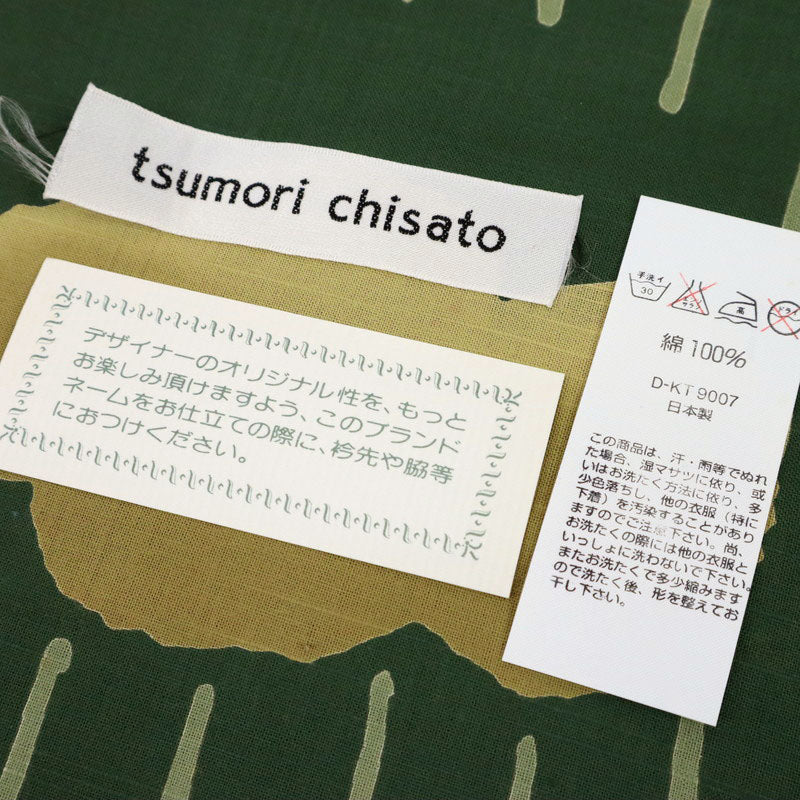 tsumori chisato
デザイナーのオリジナル性を、もっと
お楽しみ頂けますよう、このブランド
ネームをお仕立ての際に、衿先や脇等
におつけください。
手洗イ
30
エンソ
サラシ
高
ドライ
綿 100%
D-KT 9007
日本製
この商品は、汗・雨等でぬれ
た場合、湿マサツに依り、或
いはお洗たく方法に依り、多
少色落ちし、他の衣服（特に
下着）を汚染することがあり
ますのでご注意下さい。尚、
お洗たくの際には他の衣服と
いっしょに洗わないで下さい。
またお洗たくで多少縮みます
ので洗たく後、形を整えてお
干し下さい。